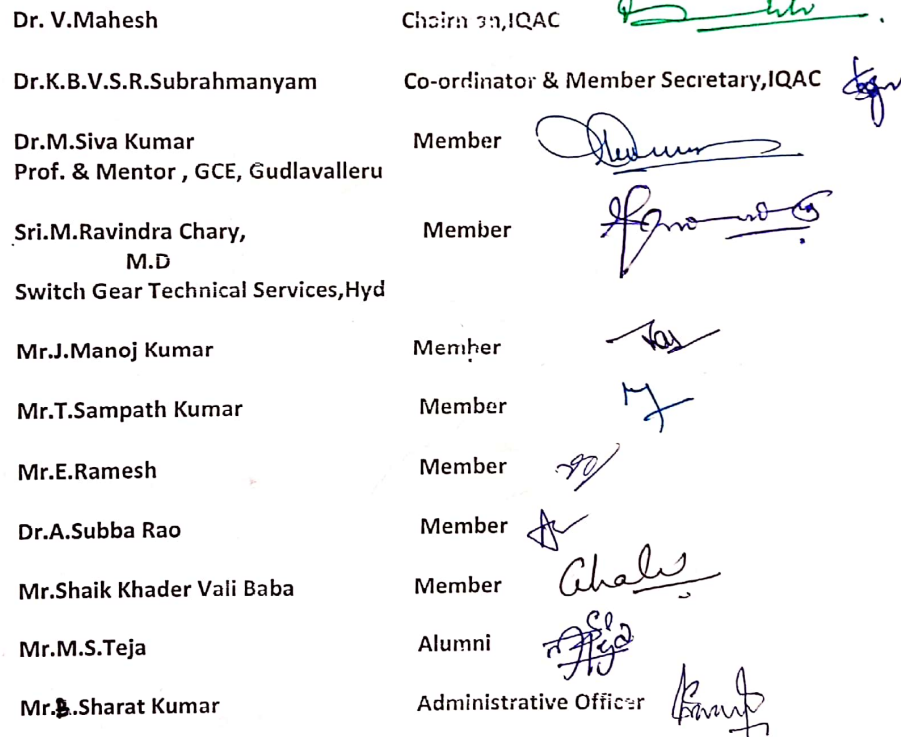 Dr. V.Mahesh Chairman,IQAC
Dr.K.B.V.S.R.Subrahmanyam Co-ordinator & Member Secretary,IQAC
Dr.M.Siva Kumar Member
Prof. & Mentor , GCE, Gudlavalleru
Sri.M.Ravindra Chary, Member
M.D
Switch Gear Technical Services,Hyd
Mr.J.Manoj Kumar Member
Mr.T.Sampath Kumar Member
Mr.E.Ramesh Member
Dr.A.Subba Rao Member
Mr.Shaik Khader Vali Baba Member
Mr.M.S.Teja Alumni
Mr.B.Sharat Kumar Administrative Officer